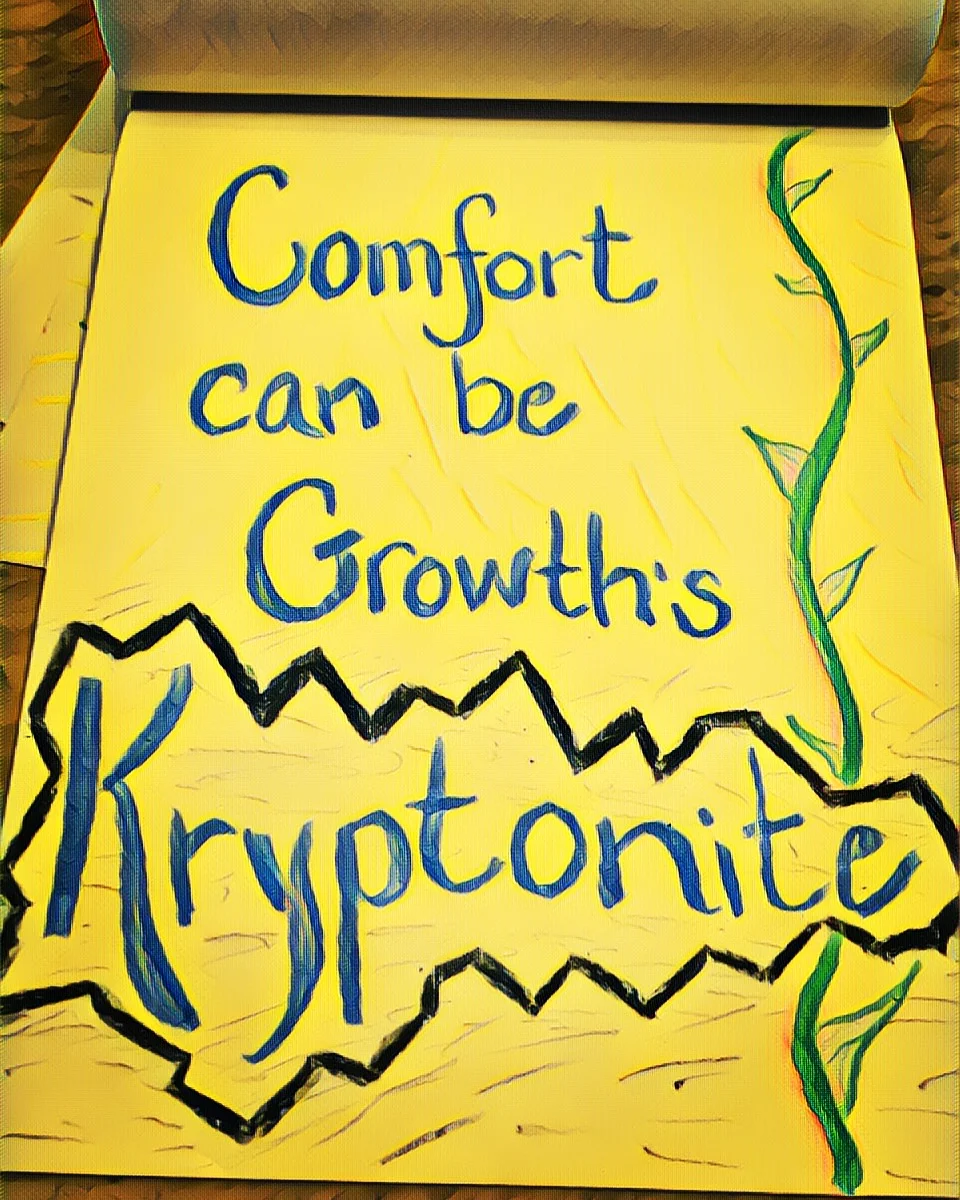 Comfort
can be
Growth's
Kryptonite